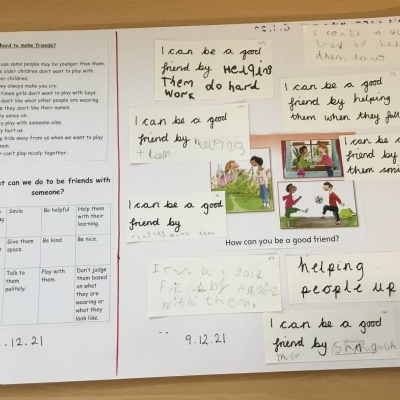 hard to make friends?
use some people may be younger than them.
e older children don't want to play with
er children.
ey always make you cry.
times girls don't want to play with boys.
don't like what other people are wearing.
e they don't like their names.
ey annoy us.
y play with someone else.
y hurt us.
y hide away from us when we want to play
em.
y can't play nicely together.
at can we do to be friends with
someone?
Smile
Be helpful
Help them
with their
learning.
Give them
space.
Be kind
Be nice.
Talk to
them
politely.
Play with
them.
Don't judge
them based
on what
they are
wearing or
what they
look like.
.12.21
I can be a good
friend by Helping
Them do hard
work
I can be a good
friend by
I can be a good
friend by
I can be a good
friend by
with them.
9.12.21
I can be a good
friend by helping
them when they fall
I can be a
friend by
them smi
How can you be a good friend?
helping
people up
I can be a good
friend by
them